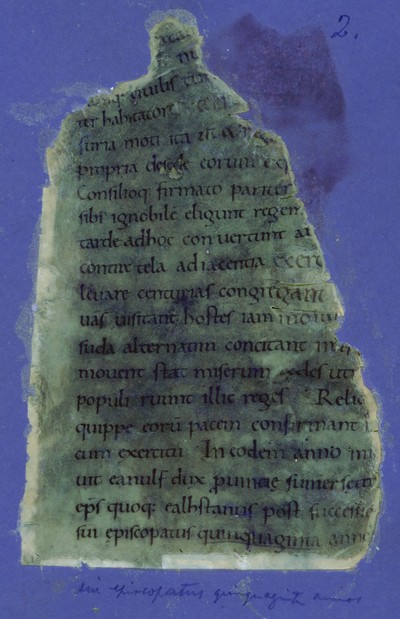 2.
ter habitatores
furia moti ita
propria eorum
Consilioq; firmato pariter
sibi ignobile eligunt regem
tarde adhoc conuertunt
contre tela adiacentia exerc
leuare centurias congregant
uas uisitant hostes iam
suda alternatim concitant
mouent stat miserum utr
populi ruunt illic reges Relic
quippe eorū pacem confirmant
cum exercitu In eodem anno
uit eanulf dux sumersete
ep̄s quoq; ealhstanus post successi
sui episcopatus quinquaginta anno
sui episcopatus quinquaginta annos